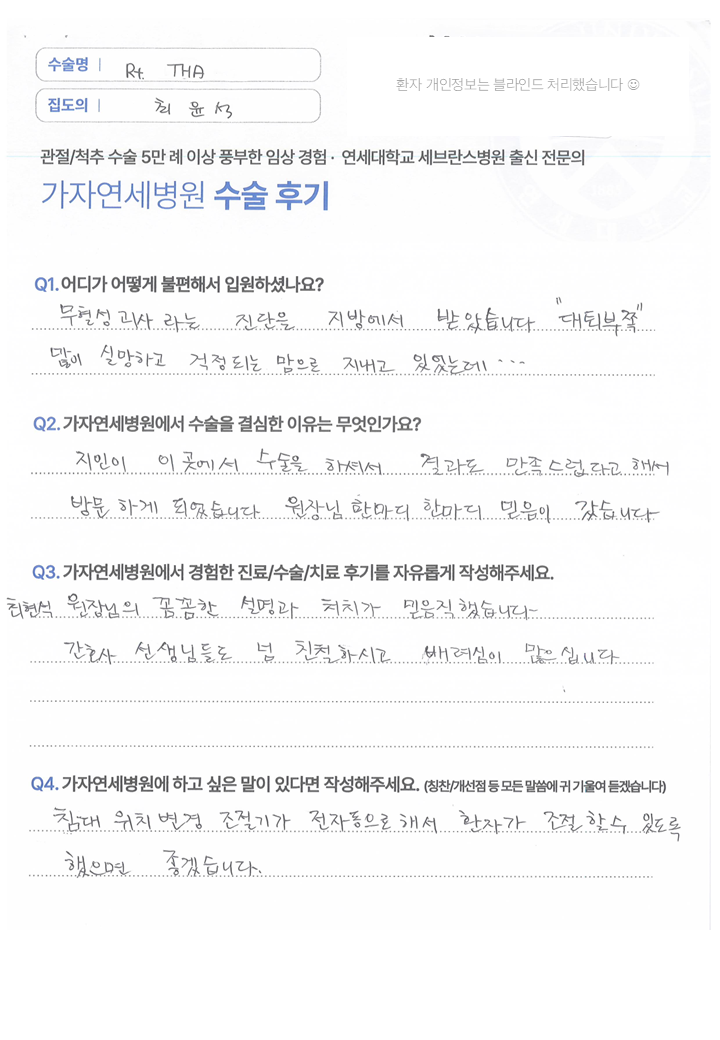 수술명 | Rt. THA
환자 개인정보는 블라인드 처리했습니다 ☺
집도의 | 최윤석
관절/척추 수술 5만 례 이상 풍부한 임상 경험 · 연세대학교 세브란스병원 출신 전문의
가자연세병원 수술 후기
Q1. 어디가 어떻게 불편해서 입원하셨나요?
무혈성괴사 라는 진단을 지방에서 받았습니다 "대퇴부쪽"
많이 실망하고 걱정되는 맘으로 지내고 있었는데 ···
Q2. 가자연세병원에서 수술을 결심한 이유는 무엇인가요?
지인이 이곳에서 수술을 하셔서 결과도 만족스럽다고 해서
방문하게 되었습니다 원장님 한마디 한마디 믿음이 갔습니다
Q3. 가자연세병원에서 경험한 진료/수술/치료 후기를 자유롭게 작성해주세요.
최현석 원장님의 꼼꼼한 설명과 처치가 믿음직했습니다
간호사 선생님들도 넘 친절하시고 배려심이 많으십니다
Q4. 가자연세병원에 하고 싶은 말이 있다면 작성해주세요. (칭찬/개선점 등 모든 말씀에 귀 기울여 듣겠습니다)
침대 위치변경 조절기가 전자동으로해서 환자가 조절할수 있도록
했으면 좋겠습니다.